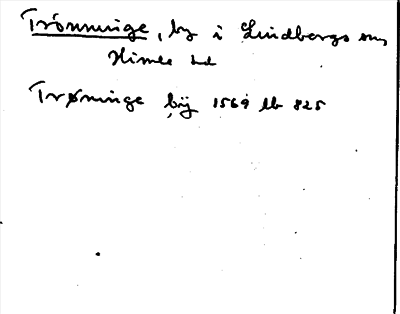 Trönninge, by i Lindbergs sn,
Himle hd
Trøninge bÿ 1569 lb 825